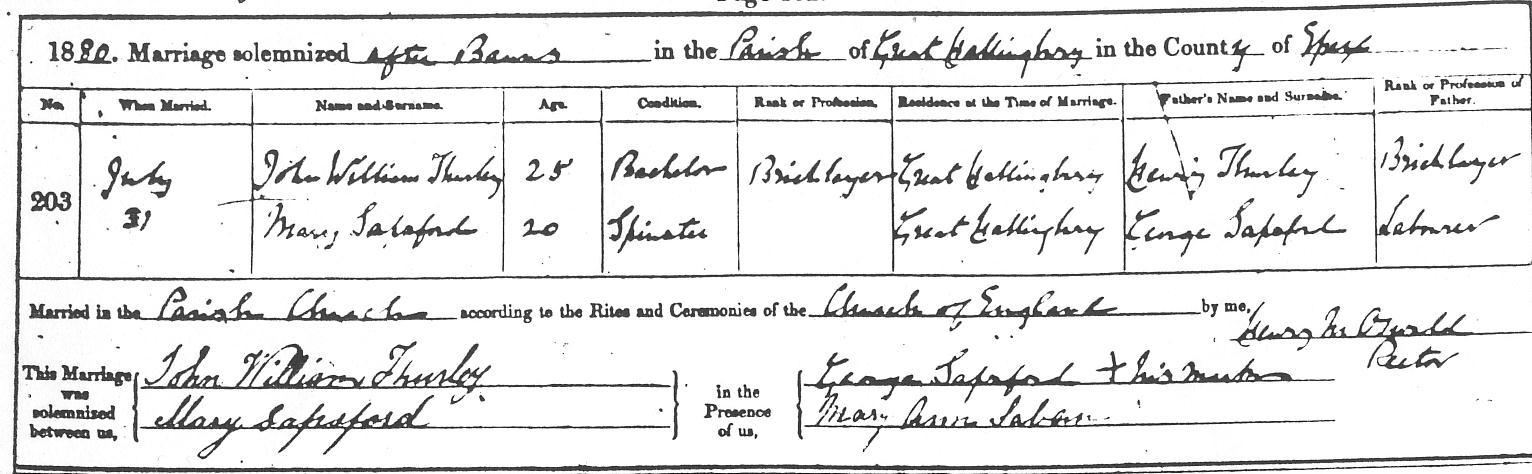 1880. Marriage solemnized after Banns in the Parish of Great Hallingbury in the County of Essex
No. When Married. Name and Surname. Age. Condition. Rank or Profession. Residence at the Time of Marriage. Father's Name and Surname. Rank or Profession of Father.
203 July 31 John William Thurley 25 Bachelor Bricklayer Great Hallingbury Henry Thurley Bricklayer
Mary Sapsford 20 Spinster Great Hallingbury George Sapsford Labourer
Married in the Parish Church according to the Rites and Ceremonies of the Church of England by me, Henry M Oswald
Rector
This Marriage was solemnized between us, John William Thurley in the Presence of us, George Sapsford + his mark
Mary Sapsford Mary Ann